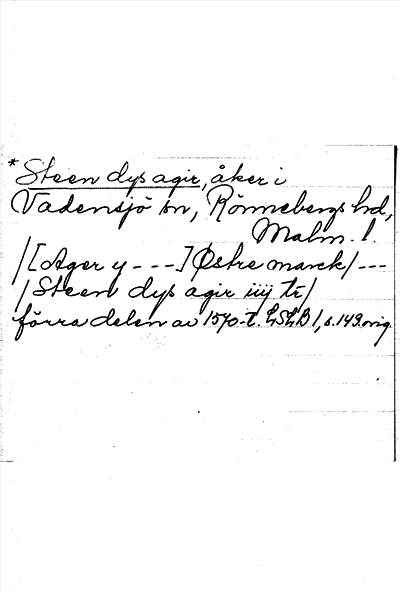 *Steen dys agir, åker i
Vadensjö sn, Rönnebergs hd,
Malm. l.
/[Ager y - - -] Østre marck/ ---
/Steen dys agir iiij tr/
förra delen av 1570-t. LSLB 1, s. 149. orig.